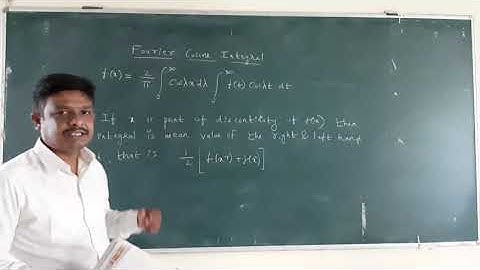 Fourier Cosine Integral
f(x) = 2/π ∫₀^∞ Cosλx dλ ∫₀^∞ f(t) Cosλt dt
If x is point of discontinuity of f(x) then
integral is mean value of the right & left hand
that is 1/2 [f(x+) + f(x-)]